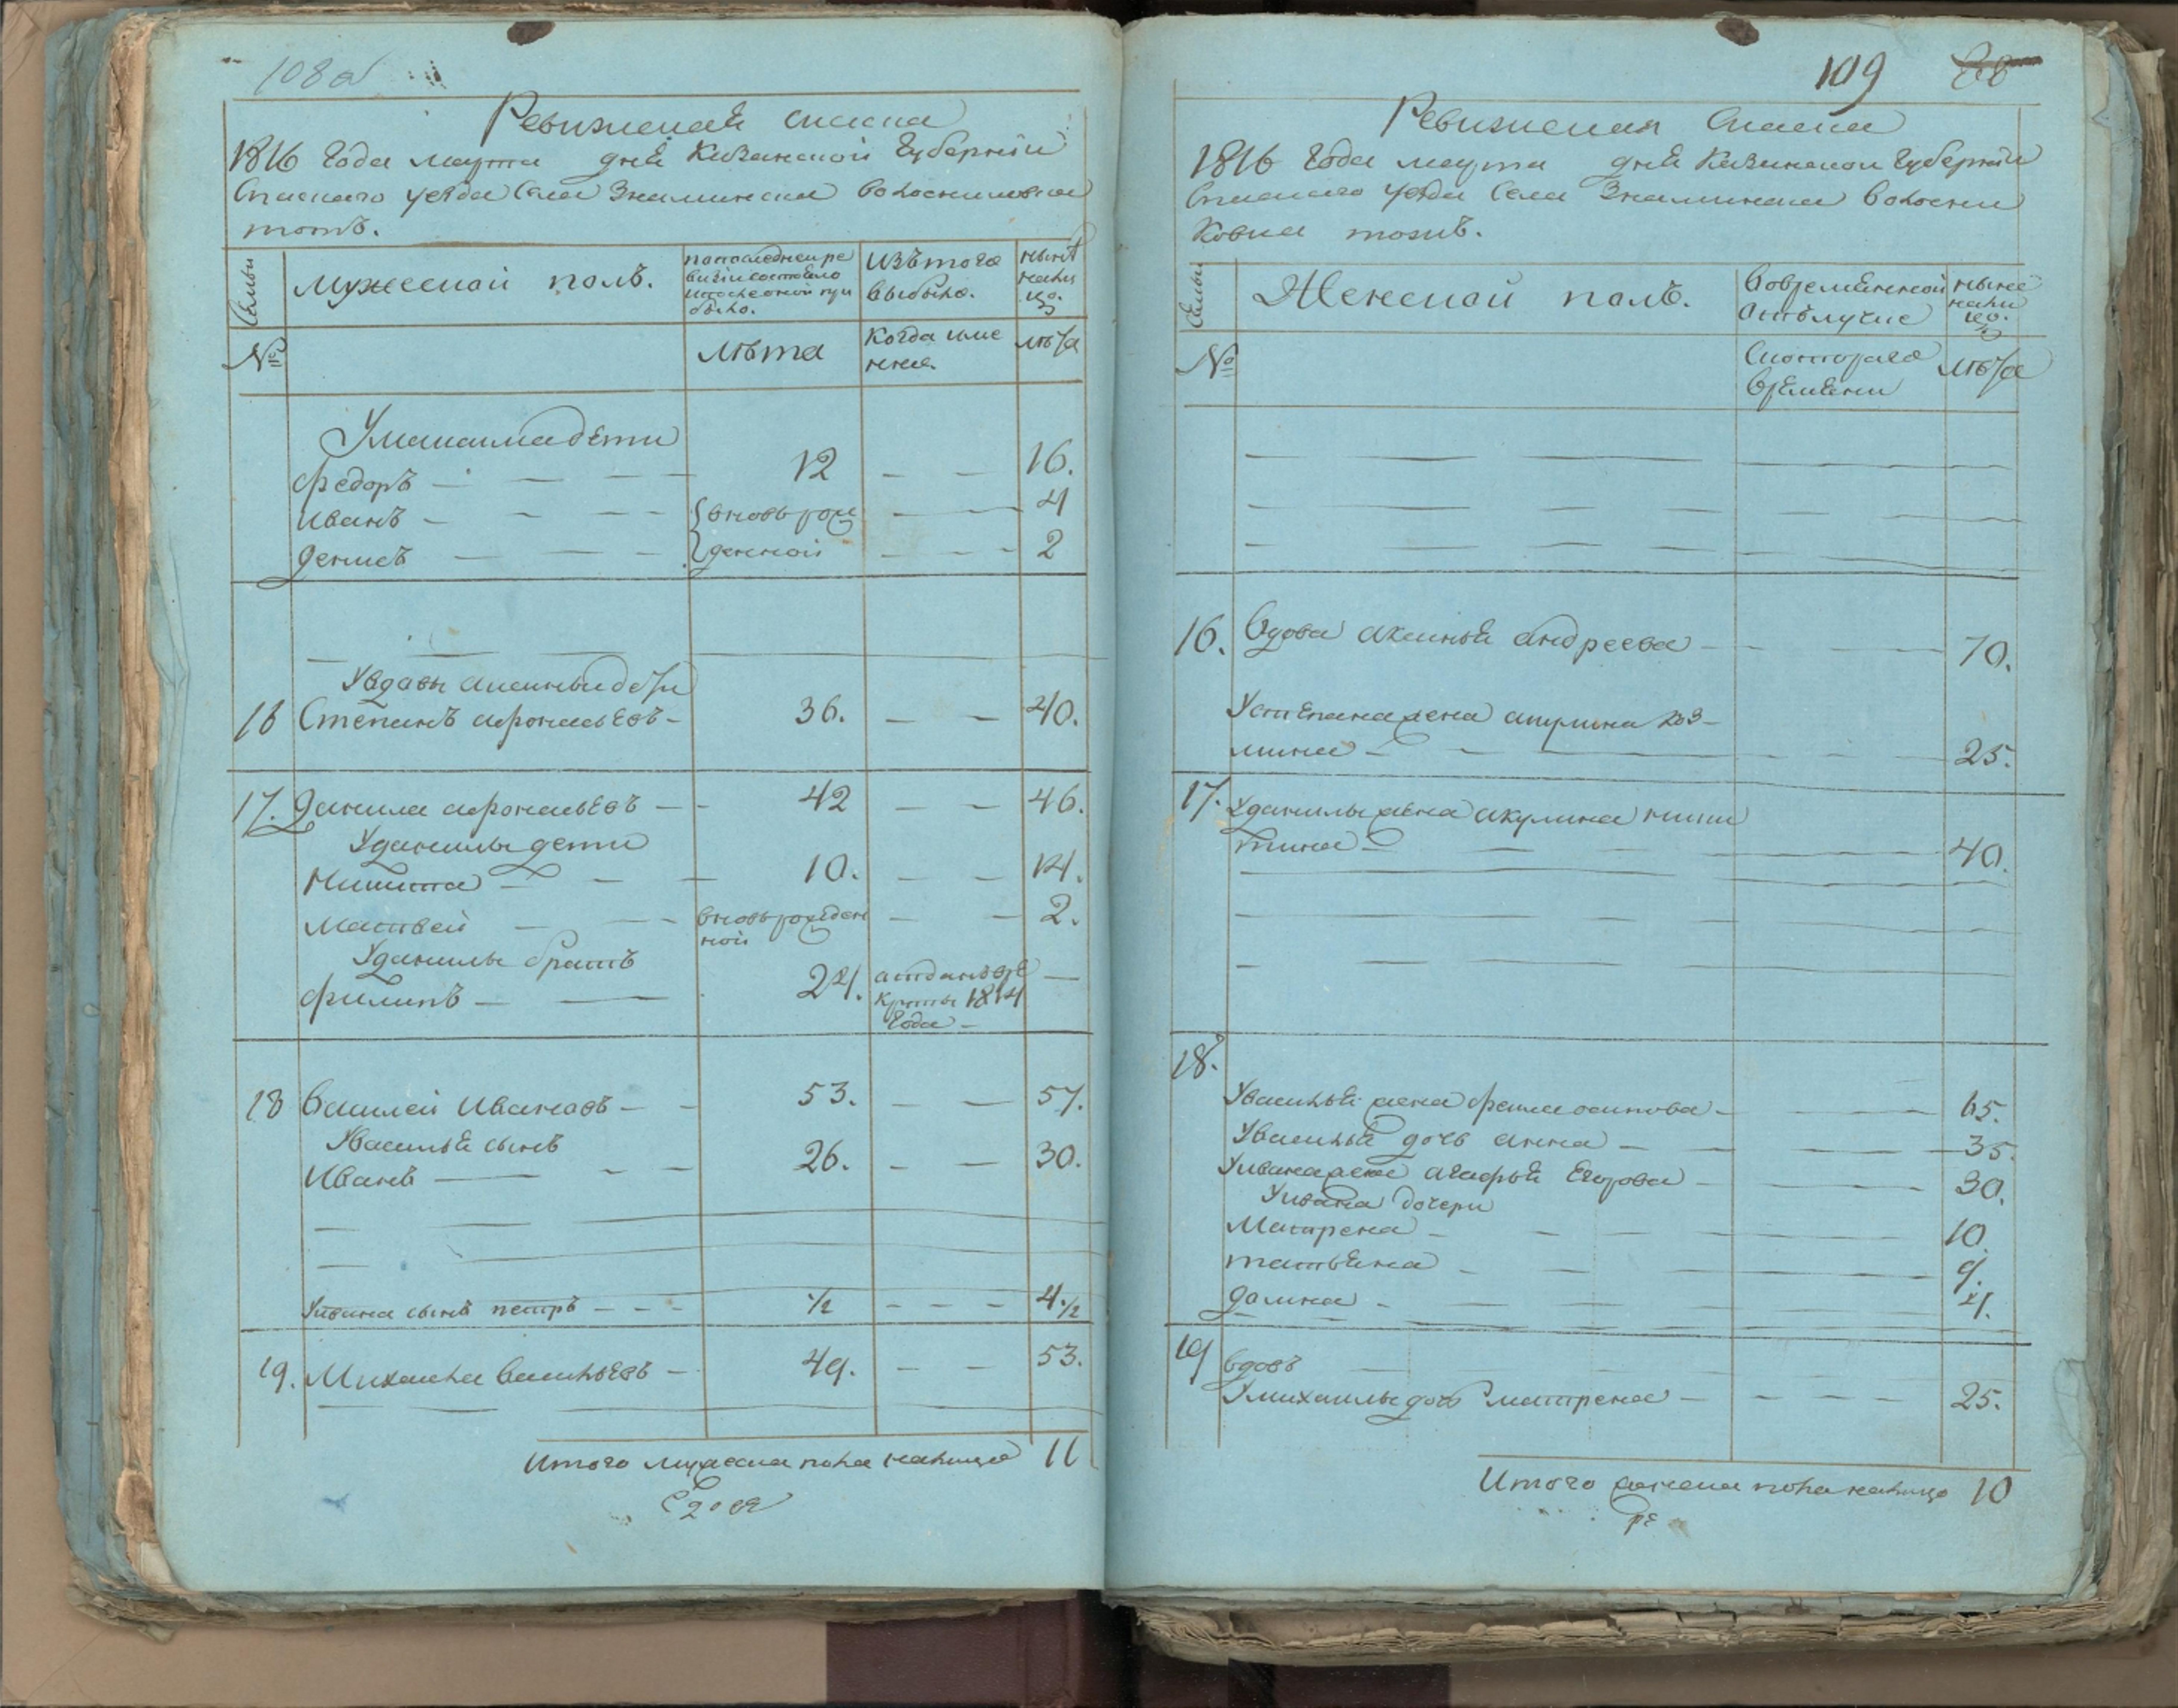 108 об
Ревизская скаска
1816 Года марта дня Казанской Губернии
Спаского уезда Села Знаминска
тожъ.
Семьи
мужеской полъ.
по последней ре
визии состояло
и после оной при
было.
Изъ того
выбыло.
ныне
нали
цо.
№
лѣта
Когда име
нно.
лѣта
дети
федоръ
12
16.
Иванъ
вновь рож
4
денисъ
денной
2
У вдовы аксиньи дети
16 Степанъ афонасьевъ
36.
40.
17. данила афонасьевъ
42
46.
У данилы дети
Никита
10.
14.
Матвей
вновь рожден
2.
ной
У данилы братъ
филипъ
24.
отданъ в ре
круты 1814
Года
18 Василей Ивановъ
53.
57.
У василья сынъ
Иванъ
26.
30.
У ивана сынъ петръ
1/2
4 1/2
19. Михаила Васильевъ
49.
53.
Итого мужеска пола налицо 11
109
Ревизская Скаска
1816 Года марта дня Казанской Губернии
Спаского уезда Села Знаминска
тожъ.
Семьи
Женской полъ.
Во временной
отлучке
ныне
нали
цо.
№
С которого
времени
лѣта
16. Вдова аксинья андреева
70.
У степана жена акулина коз
мина
25.
17. У данилы жена акулина ники
тина
40.
18.
У василья жена фекла осипова
65.
У василья дочь анна
35.
У ивана жена агафья Егорова
30.
У ивана дочери
Матрена
10.
татьяна
9.
домна
4.
19 вдовъ
У михаилы дочь матрена
25.
Итого женска пола налицо 10